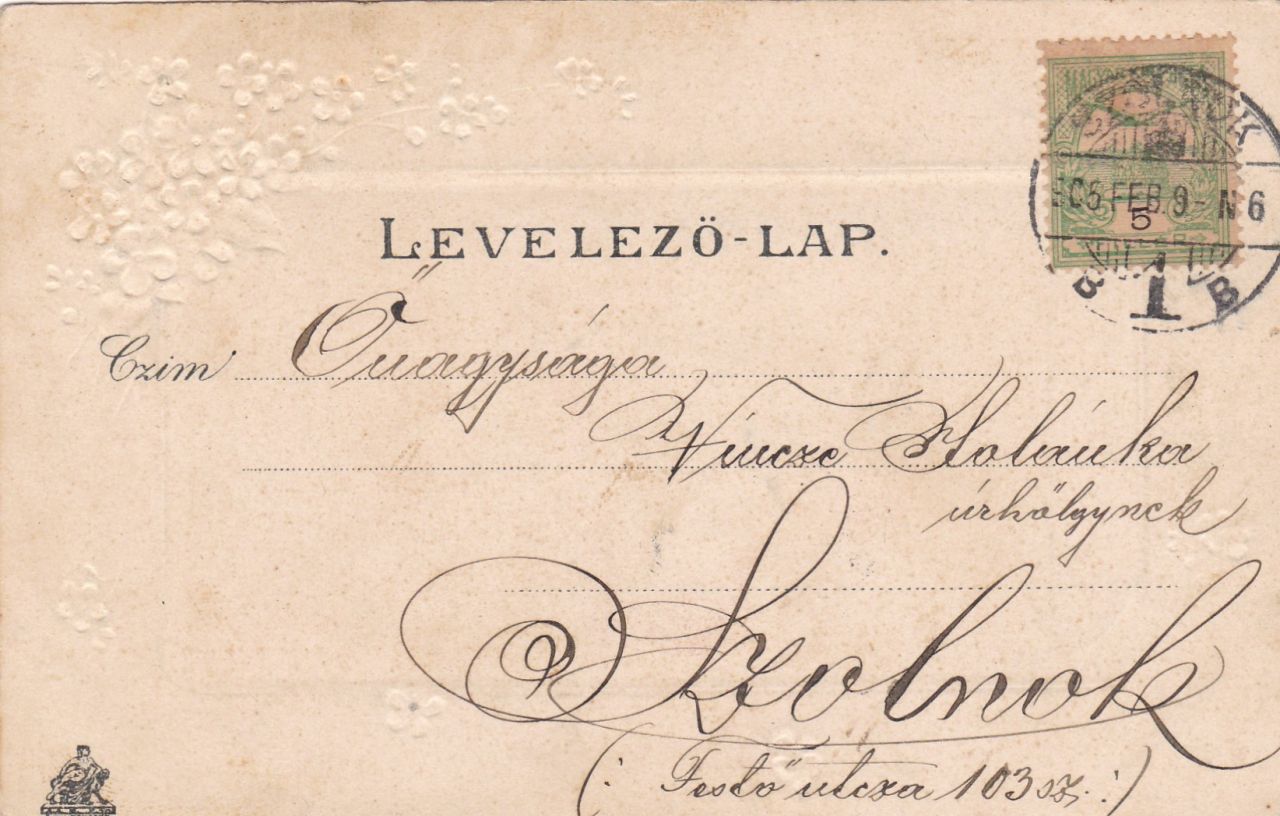 LEVELEZŐ-LAP.
Czim Őnagysága
Vincze Jolánka
úrhölgynek
Szolnok
(: Festő utcza 103 sz. :)
5
905 FEB. 9 - N 6
B 1 B